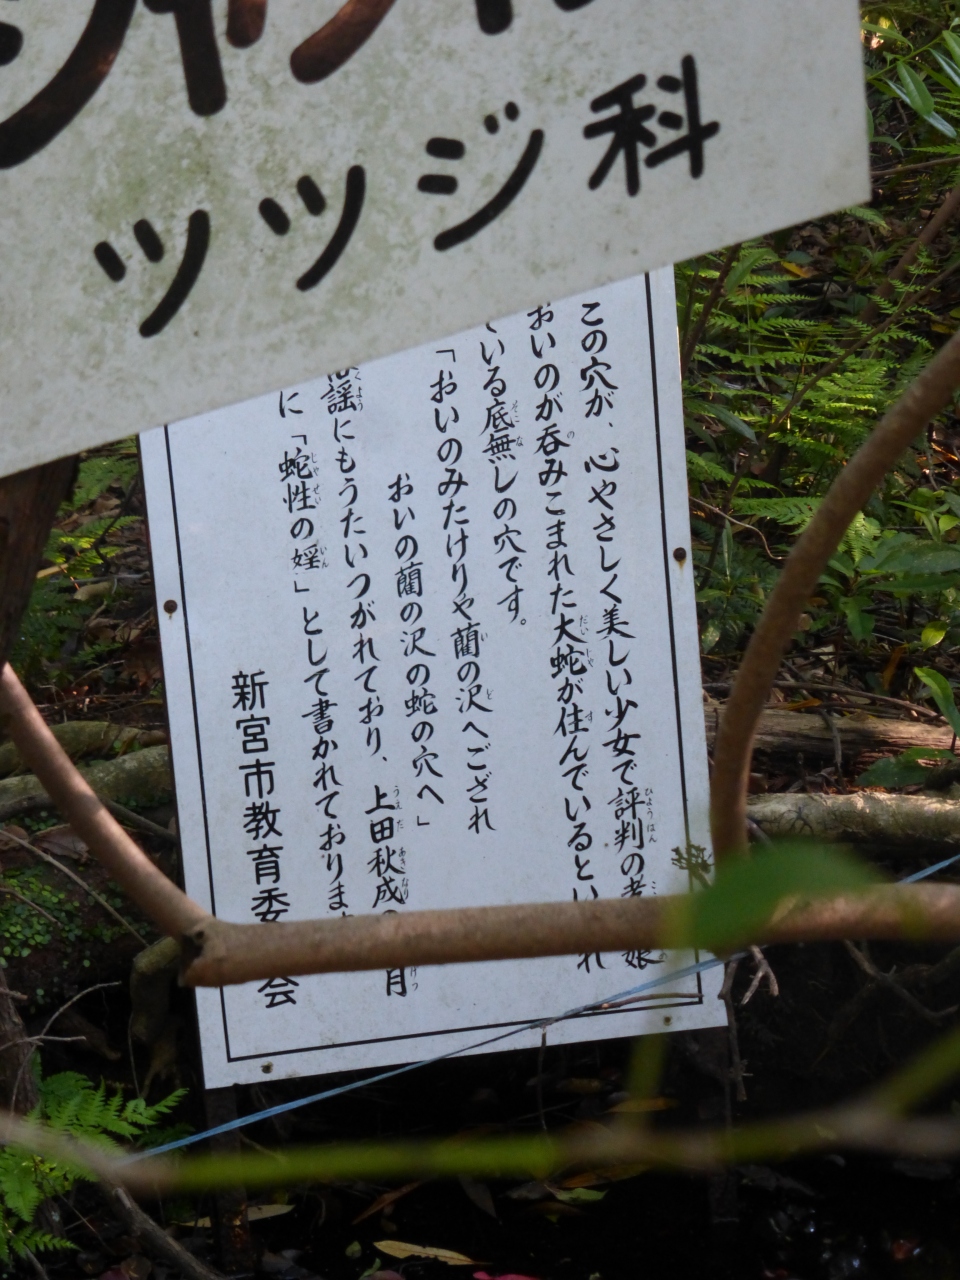 ツツジ科
この穴が、心やさしく美しい少女で評判の孝
娘
おいのが呑みこまれた大蛇が住んでいるとい
れ
ている底無しの穴です。
「おいのみたけりや藺の沢へござれ
おいの藺の沢の蛇の穴へ」
謡にもうたいつがれており、上田秋成の
月
に「蛇性の婬」として書かれておりま
新宮市教育委
会